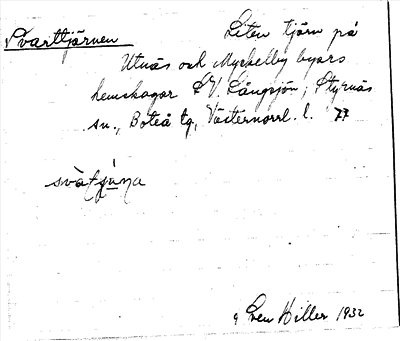 Svarttjärnen Liten tjärn på
Utnäs och Myckelby byars
hemskogar S.V. Långsjön, Styrnäs
sn., Boteå tg, Västernorrl. l. 77
Sven Hiller 1932